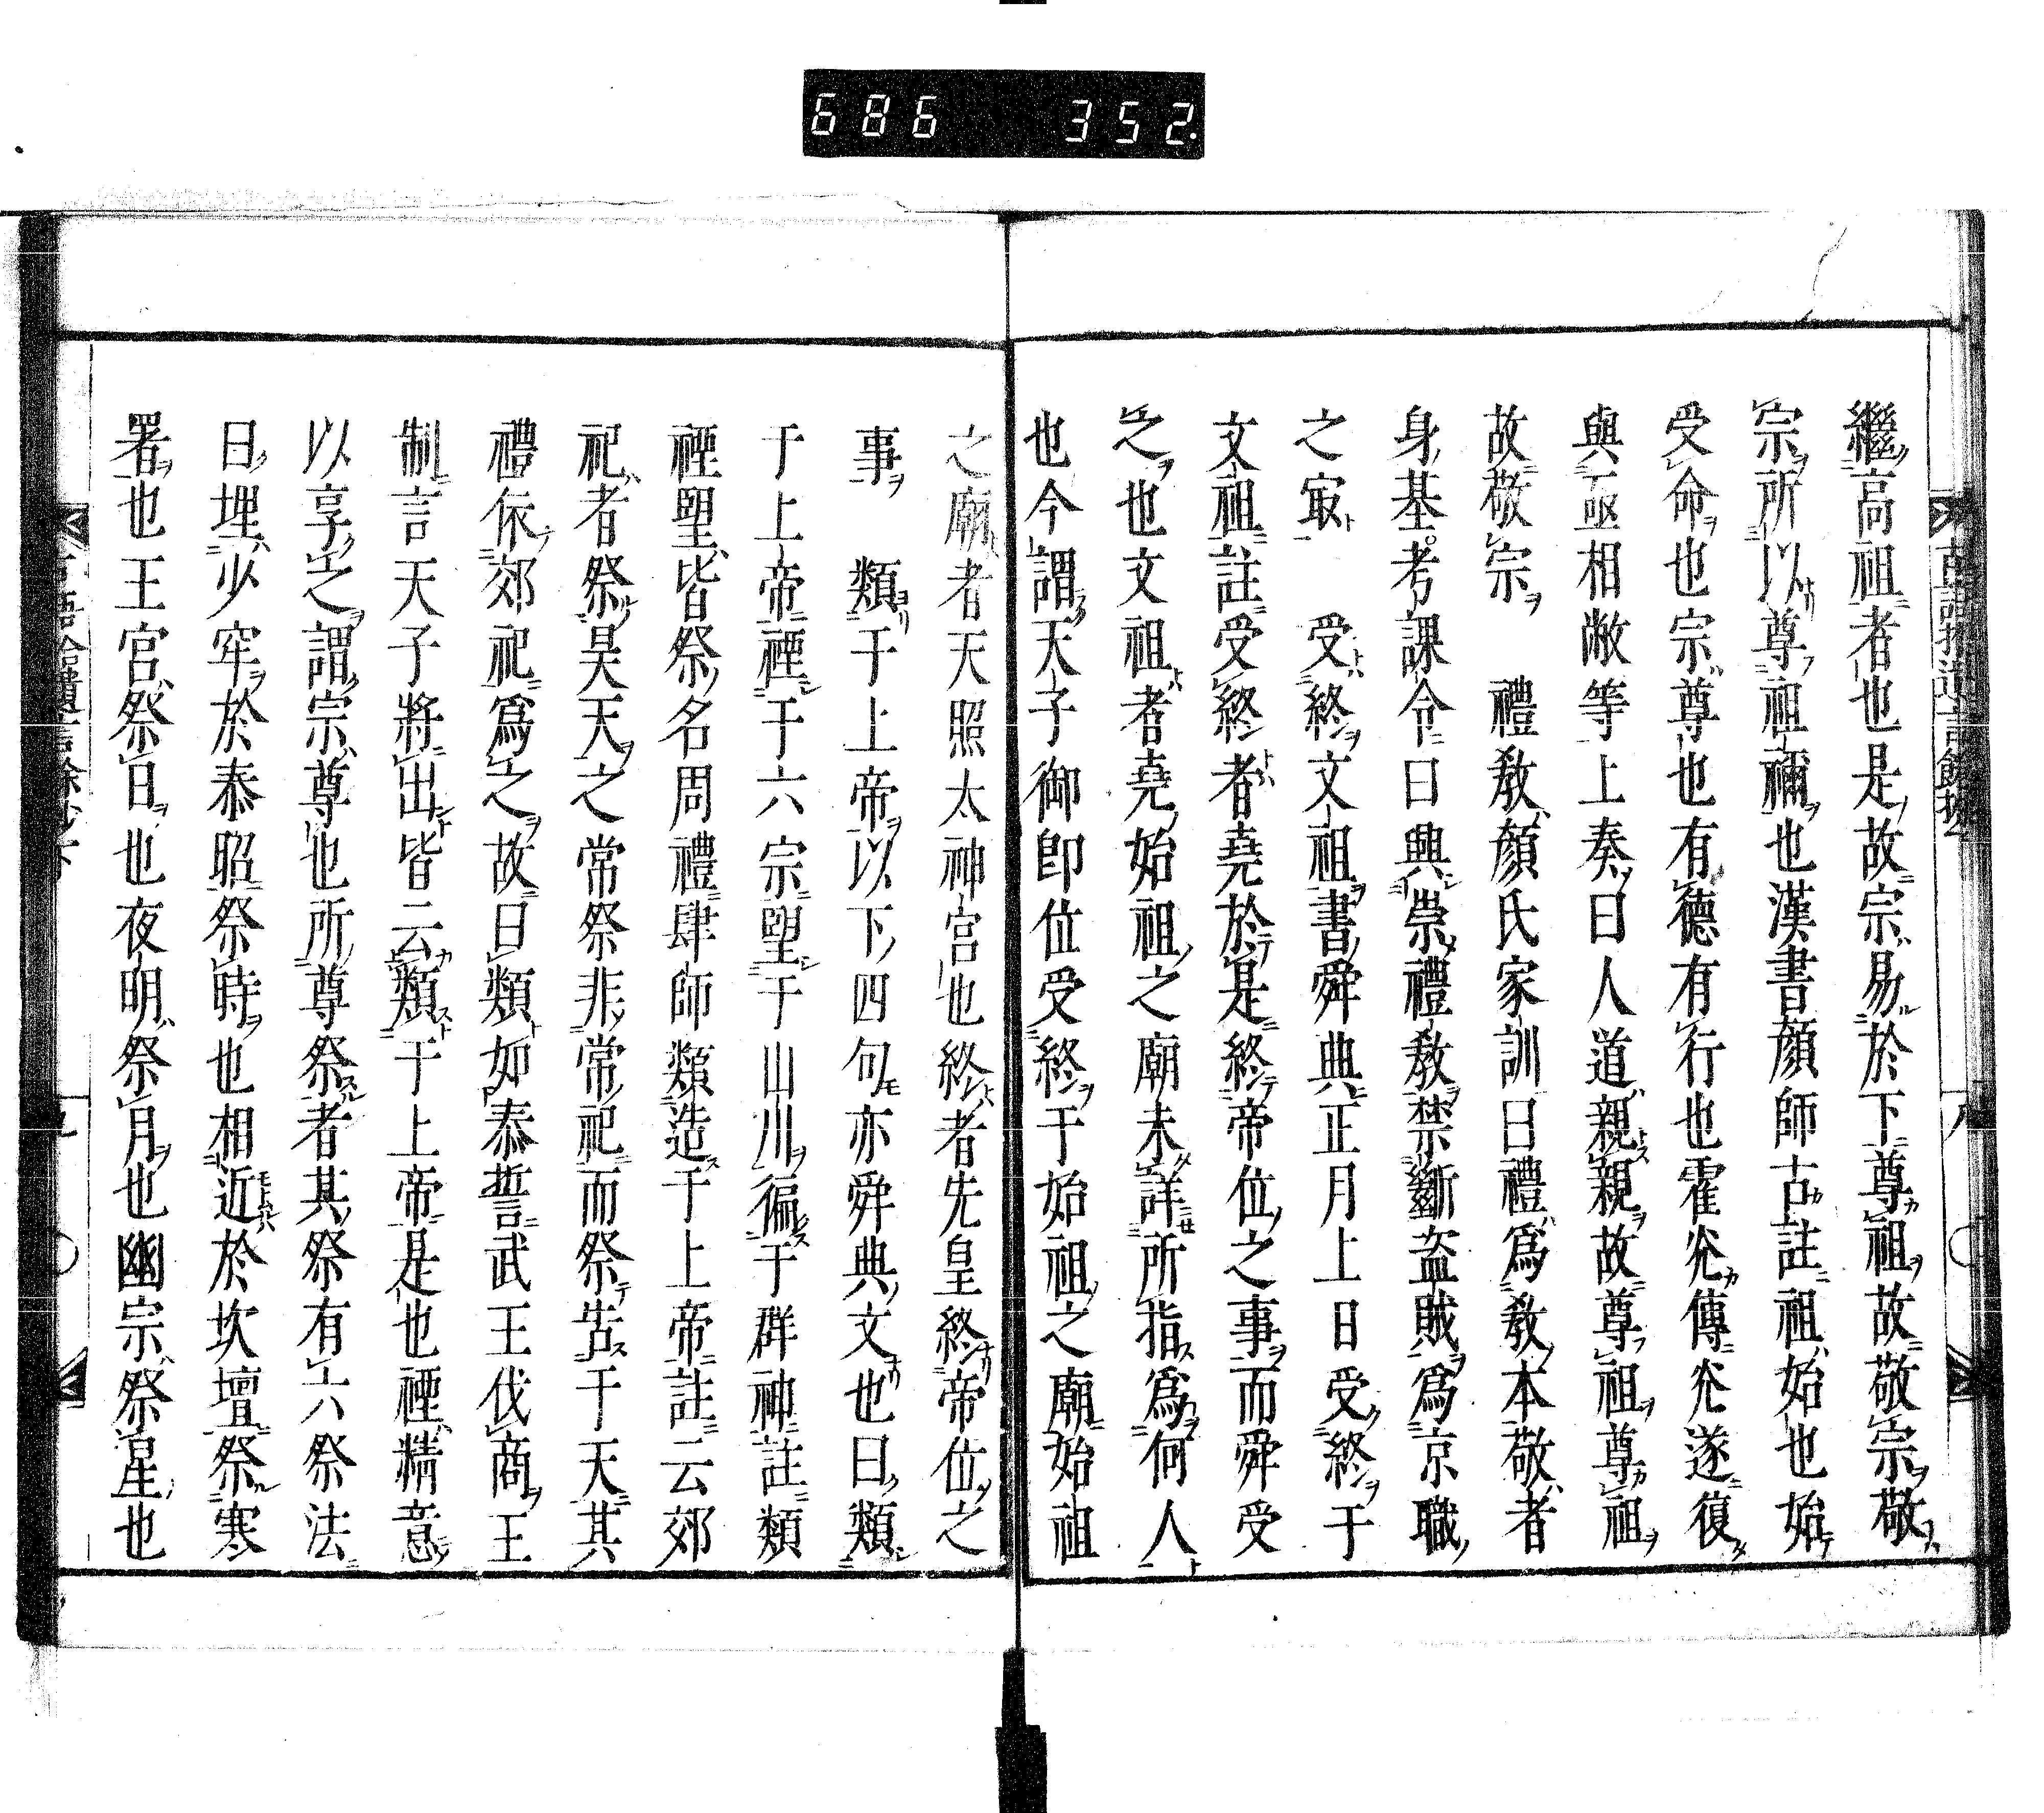 686 352.
繼高祖者也是故宗易於下尊祖故敬宗敬
宗所以尊祖禰也漢書顔師古註祖始也始
受命也宗尊也有德有行也霍光傳光遂復
與亟相敞等上奏曰人道親親故尊祖尊祖
故敬宗 禮敎顔氏家訓曰禮爲敎本敬者
身基考課令曰興崇禮敎禁斷盗賊爲京職
之寂 受終文祖書舜典正月上日受終于
文祖註受終者堯於是終帝位之事而舜受
之也文祖者堯始祖之廟未詳所指爲何人
也今謂天子御即位受終于始祖之廟始祖
之廟者天照太神宮也終者先皇終帝位之
事 類于上帝以下四句亦舜典文也曰類
于上帝禋于六宗望于山川徧于群神註類
禋望皆祭名周禮肆師類造于上帝註云郊
祀者祭昊天之常祭非常祀而祭告于天其
禮依郊祀爲之故曰類如泰誓武王伐商王
制言天子將出皆云類于上帝是也禋精意
以享之謂宗尊也所尊祭者其祭有六祭法
曰埋少牢於泰昭祭時也相近於坎壇祭寒
署也王宮祭日也夜明祭月也幽宗祭星也